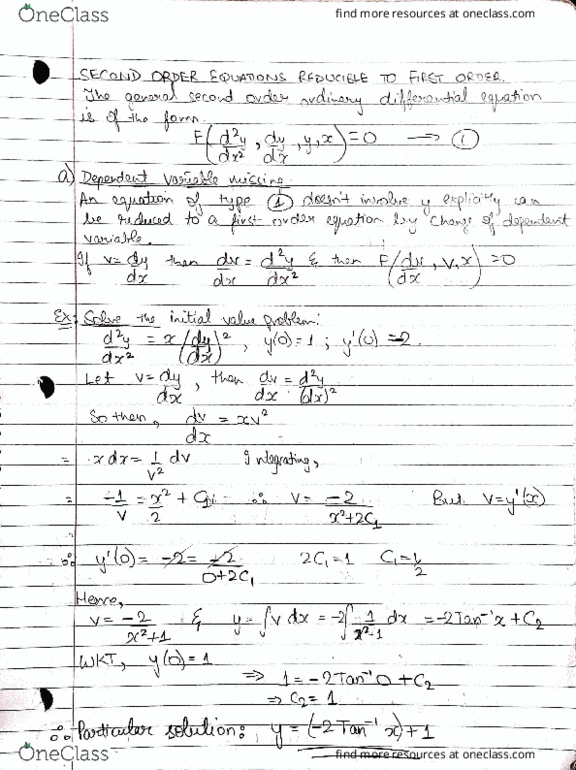 OneClass
find more resources at oneclass.com
SECOND ORDER EQUATIONS REDUCIBLE TO FIRST ORDER.
The general second order ordinary differential equation
is of the form.
F(d²y/dx², dy/dx, y, x) = 0 → ①
a) Dependent variable missing
An equation of type ① doesn't involve y explicitly can
be reduced to a first order equation by change of dependent
variable.
If v = dy/dx then dv/dx = d²y/dx² & then F(dv/dx, v, x) = 0
Ex: Solve the initial value problem:
d²y/dx² = x(dy/dx)², y(0)=1 ; y'(0) = -2.
Let v = dy/dx, then dv/dx = d²y/(dx)²
So then, dv/dx = xv²
= x dx = 1/v² dv Integrating,
= -1/v = x²/2 + C₁ ∴ v = -2/(x²+2C₁) But v=y'(x)
∴ y'(0) = -2 = -2/(0+2C₁) 2C₁=1 C₁=1/2
Hence,
v = -2/(x²+1) & y = ∫v dx = -2∫ 1/(x²-1) dx = -2Tan⁻¹x + C₂
WKT, y(0)=1
⇒ 1 = -2Tan⁻¹0 + C₂
⇒ C₂ = 1
∴ Particular solution: y = (-2Tan⁻¹ x) + 1
OneClass
find more resources at oneclass.com